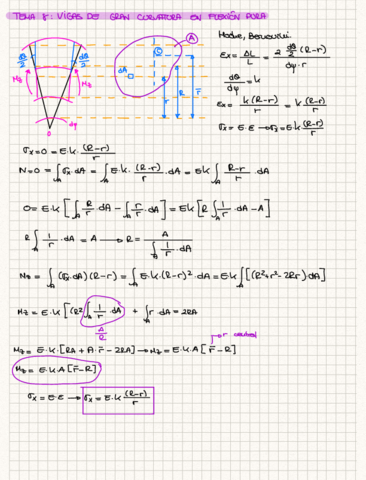 TEMA 8: VIGAS DE GRAN CURVATURA EN FLEXIÓN PURA
A
G
dθ/2 dθ/2
dA
Mz Mz
r R r̄
0 dφ
Hooke, Bernouilli.
εx = ΔL/L = 2 dθ/2 (R-r) / dφ·r
dθ/dφ = k
εx = k(R-r)/r = k (R-r)/r
σx = E·ε → σx = E·k (R-r)/r
σx=0 = E·k · (R-r)/r
N=0 = ∫A σx·dA = ∫A E·k · (R-r)/r · dA = Ek ∫A R-r/r · dA
0 = E·k [∫A R/r · dA - ∫A r/r · dA] = Ek [R ∫A 1/r · dA - A]
R ∫A 1/r · dA = A → R = A / ∫A 1/r · dA
Mz = ∫A (σx·dA)(R-r) = ∫A E·k·(R-r)²/r · dA = Ek ∫A [(R²+r²-2Rr)/r dA]
Mz = E·k [(R² ∫A 1/r · dA) + ∫A r·dA - 2RA
A/R
Mz = E·k·[RA + A·r̄ - 2RA] → Mz = E·k·A [r̄ - R]
Mz = E·k·A [r̄ - R]
σx = E·ε → σx = E·k · (R-r)/r